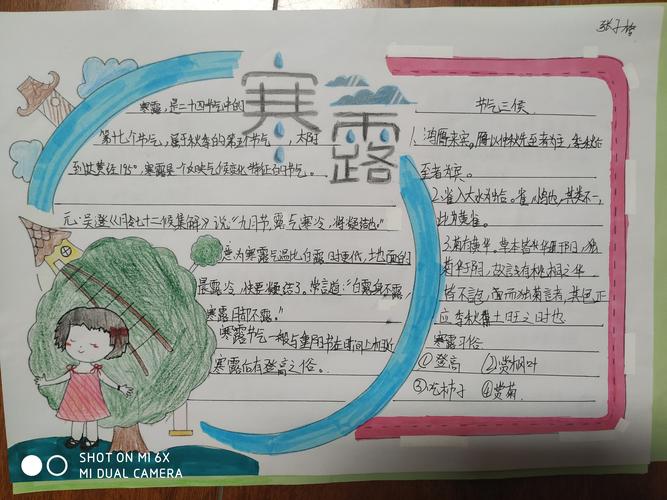 寒露
寒露,是二十四节气中的
第十七个节气,属于秋季的第五个节气,太阳
到达黄经195°,寒露是一个反映气候变化特征的节气。
元·吴澄《月令七十二候集解》说"九月节,露气寒冷,将凝结也。"
意为寒露气温比白露时更低,地面的
露冷,快要凝结了。常言道:"白露身不露,
寒露脚不露。"
寒露节气一般与重阳节在时间上相近
寒露后有登高之俗。
节气三候
1、鸿雁来宾。雁以仲秋先至者为主,季秋后
至者为宾。
2、雀入大水为蛤。雀小鸟也,其类不一,
此为黄雀。
3、菊有黄华。草木皆华于阳,独
菊华于阴,故言有桃桐之华
皆不言色,而独菊言者,其色正
应季秋土旺之时也
寒露习俗
①登高 ②赏枫叶
③吃柿子 ④赏菊
SHOT ON MI 6X
MI DUAL CAMERA